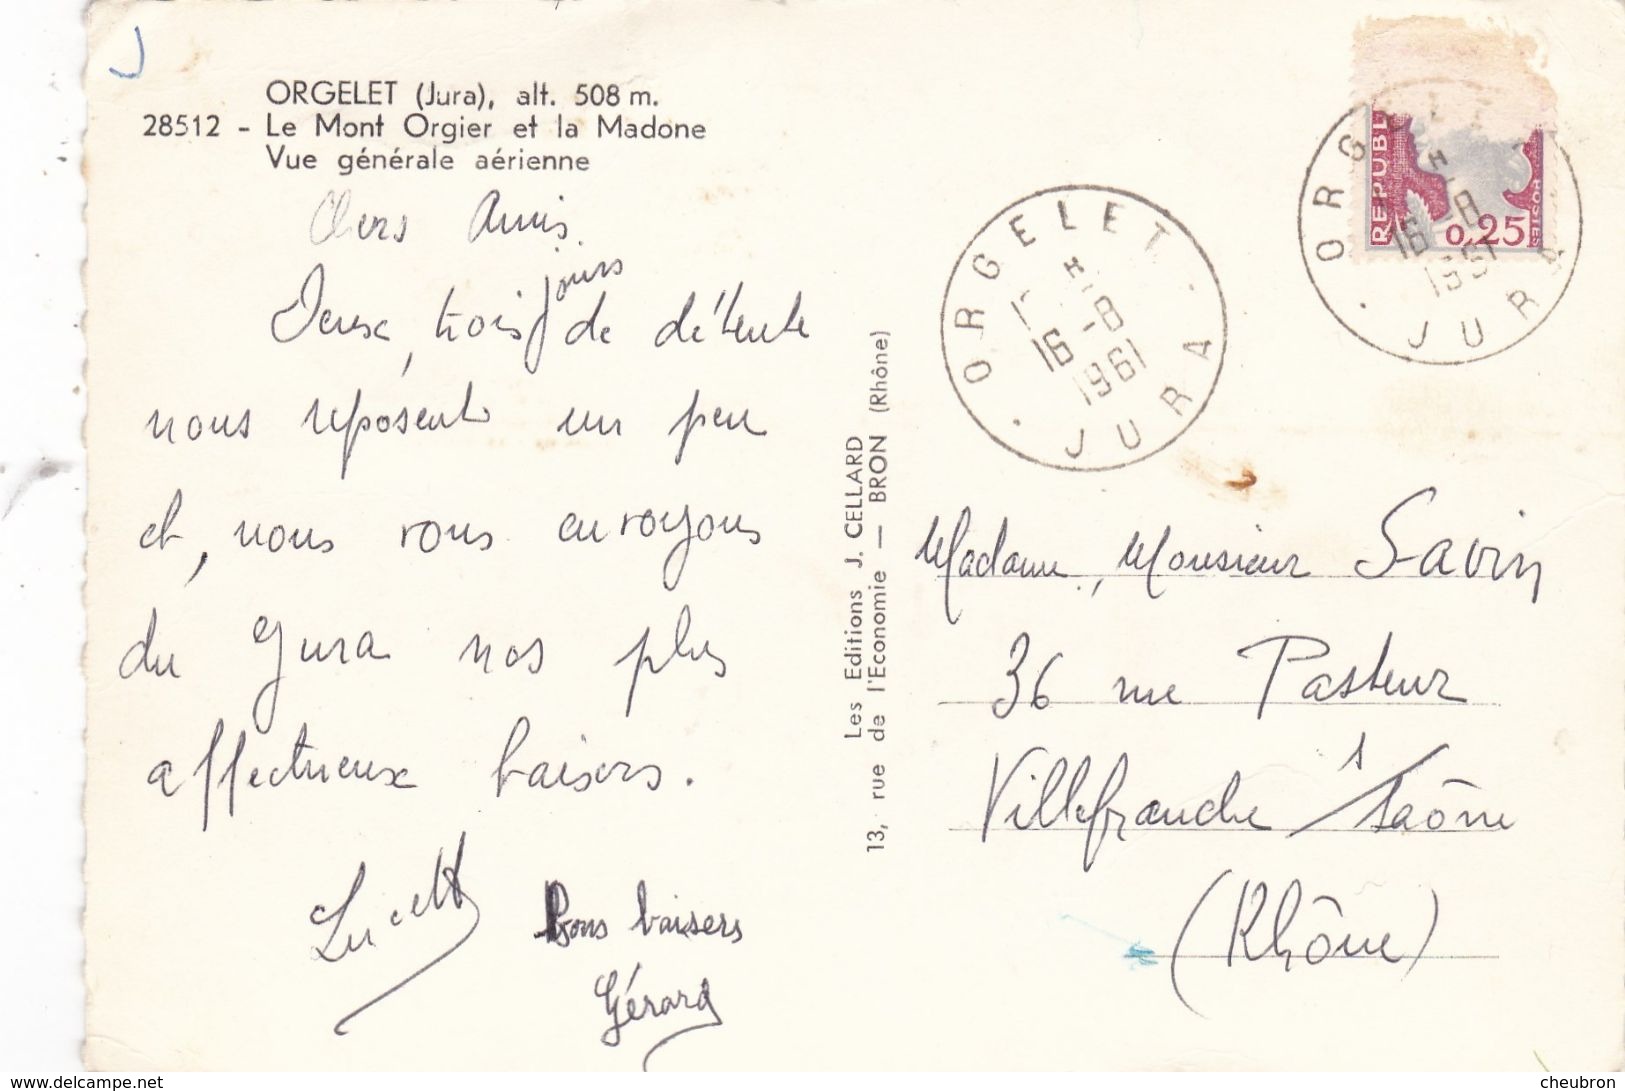 J
ORGELET (Jura), alt. 508 m.
28512 - Le Mont Orgier et la Madone
Vue générale aérienne
Chers Amis.
Deux, trois jours de détente
nous reposent un peu
et, nous vous envoyons
du Jura nos plus
affectueux baisers.
Lucette
Bons baisers
Gérard
Les Editions J. CELLARD
13, rue de l'Economie — BRON (Rhône)
ORGELET
H
16 -8
1961
JURA
REPUBL
0,25
POSTES
ORGELET
H
16 -8
1961
JURA
Madame, Monsieur Savin
36 rue Pasteur
Villefranche s/Saône
(Rhône)
www.delcampe.net
cheubron